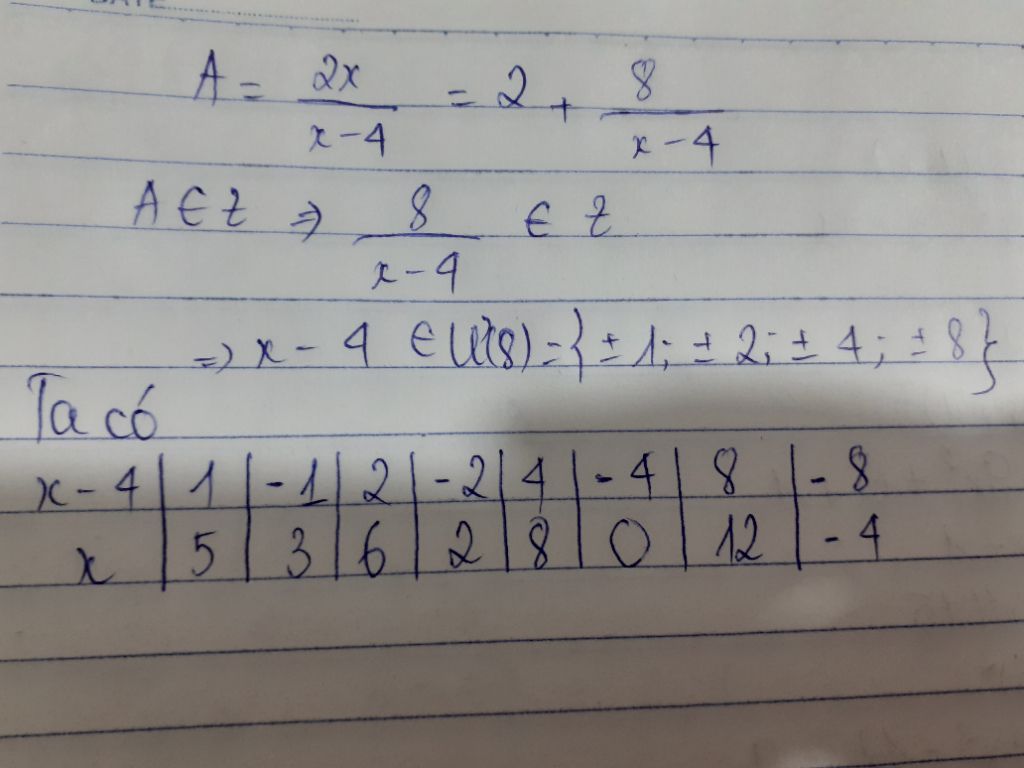 A = 2x/(x-4) = 2 + 8/(x-4)
A ∈ Z ⇒ 8/(x-4) ∈ Z
⇒ x - 4 ∈ Ư(8) = {±1; ±2; ±4; ±8}
Ta có
x-4 | 1 | -1 | 2 | -2 | 4 | -4 | 8 | -8
x | 5 | 3 | 6 | 2 | 8 | 0 | 12 | -4